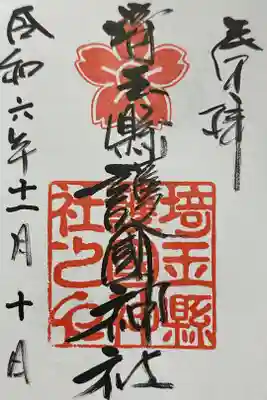 奉拝
埼玉縣護國神社
埼玉縣護國神社之印
令和六年十一月十日